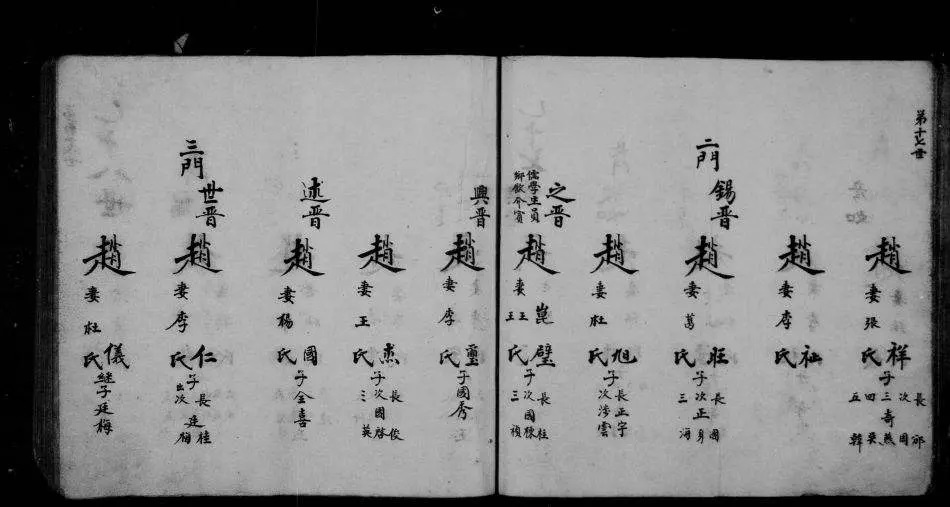 第十七世
趙祥
妻張氏
子長
次國
三奇
四英
五韓
趙祉
妻李氏
二門
錫晋
趙旺
妻葛氏
子長國
次正身
三海
趙旭
妻杜氏
子長正宇
次濟雲
之晋
儒學生員
鄉飲介賓
趙崑璧
妻王王氏
子長國柱
次國棟
三國禎
興晋
趙璽
妻李氏
子國秀
趙
妻王氏
子長國俊
次國啓
三國英
述晋
趙國
妻楊氏
子金喜
三門
世晋
趙仁
妻李氏
子長廷桂
次廷梅
出
趙儀
妻杜氏
継子廷梅